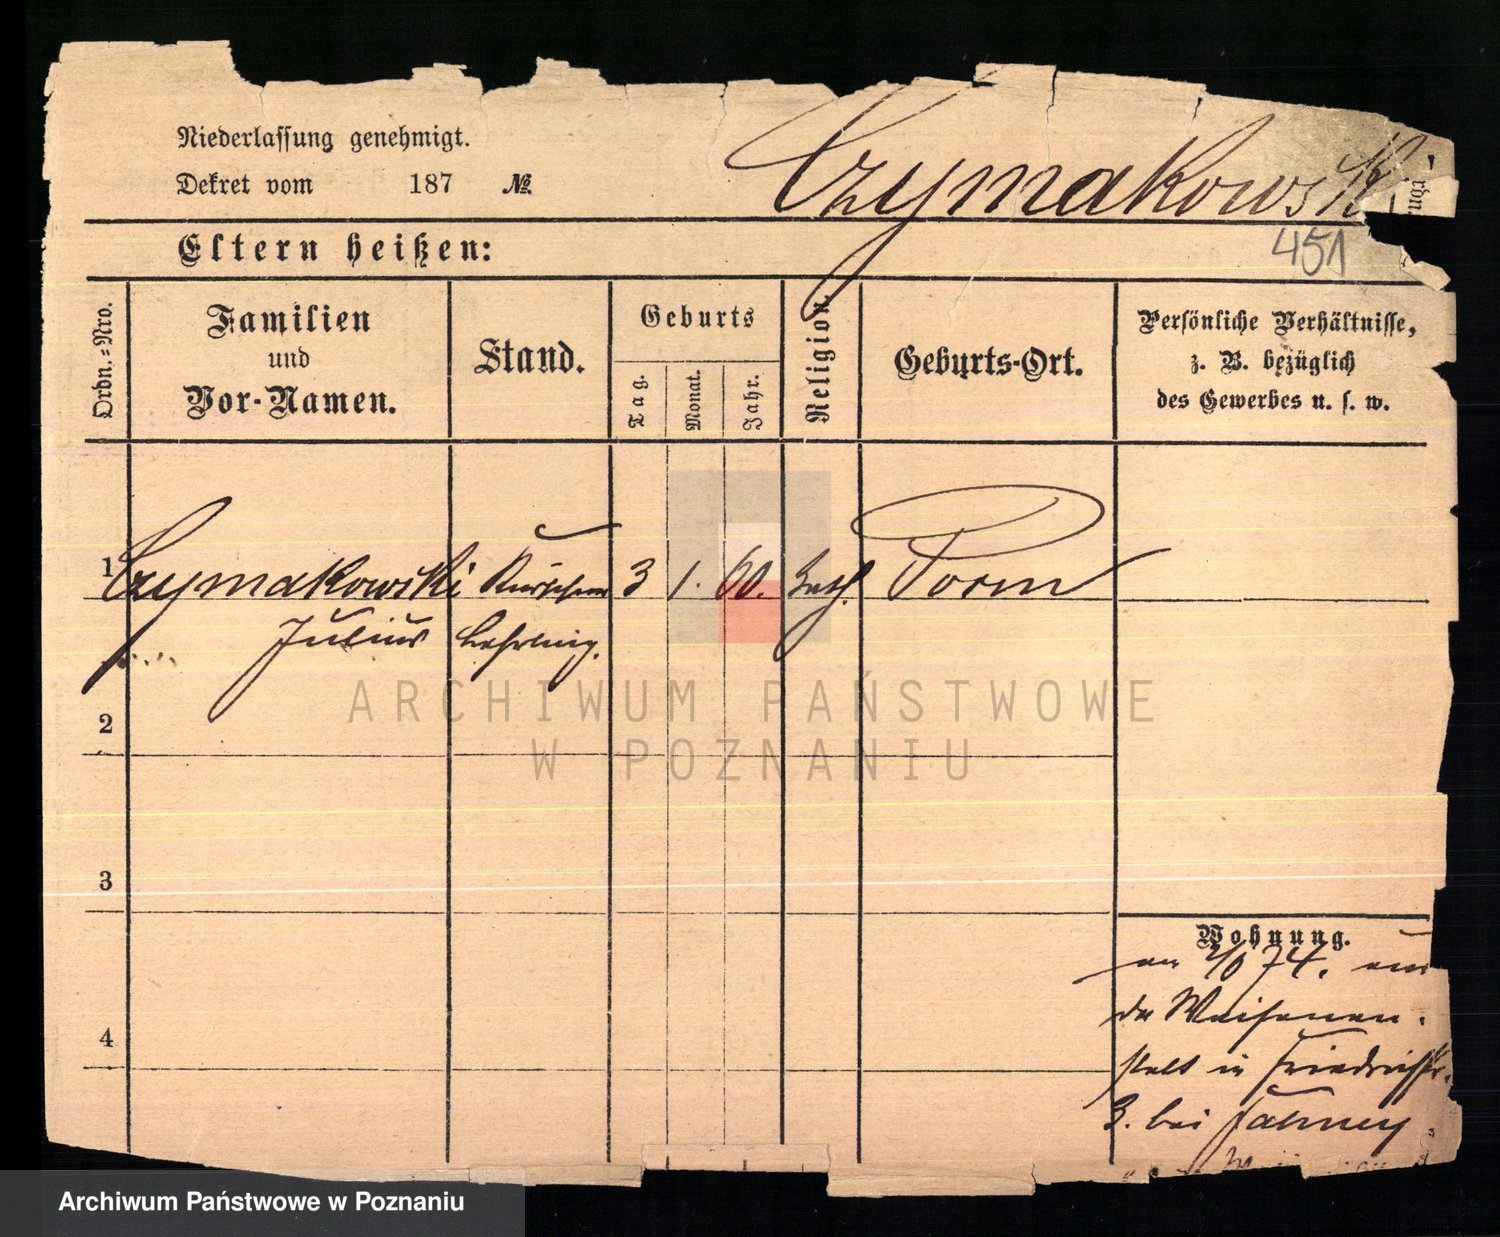 Niederlassung genehmigt.
Dekret vom 187 №
Czymakowski
Eltern heißen:
451
Ordn.=Nro.
Familien
und
Vor-Namen.
Stand.
Geburts
Tag.
Monat.
Jahr.
Religion.
Geburts-Ort.
Persönliche Verhältnisse,
z. B. bezüglich
des Gewerbes u. s. w.
1 Czymakowski Kürschner 3 1. 60. kath. Posen
Julius Lehrling.
2
3
4
Wohnung.
74. aus
der Waisenan-
stalt in Friedrichstr.
3. bei
ARCHIWUM PAŃSTWOWE
W POZNANIU
Archiwum Państwowe w Poznaniu